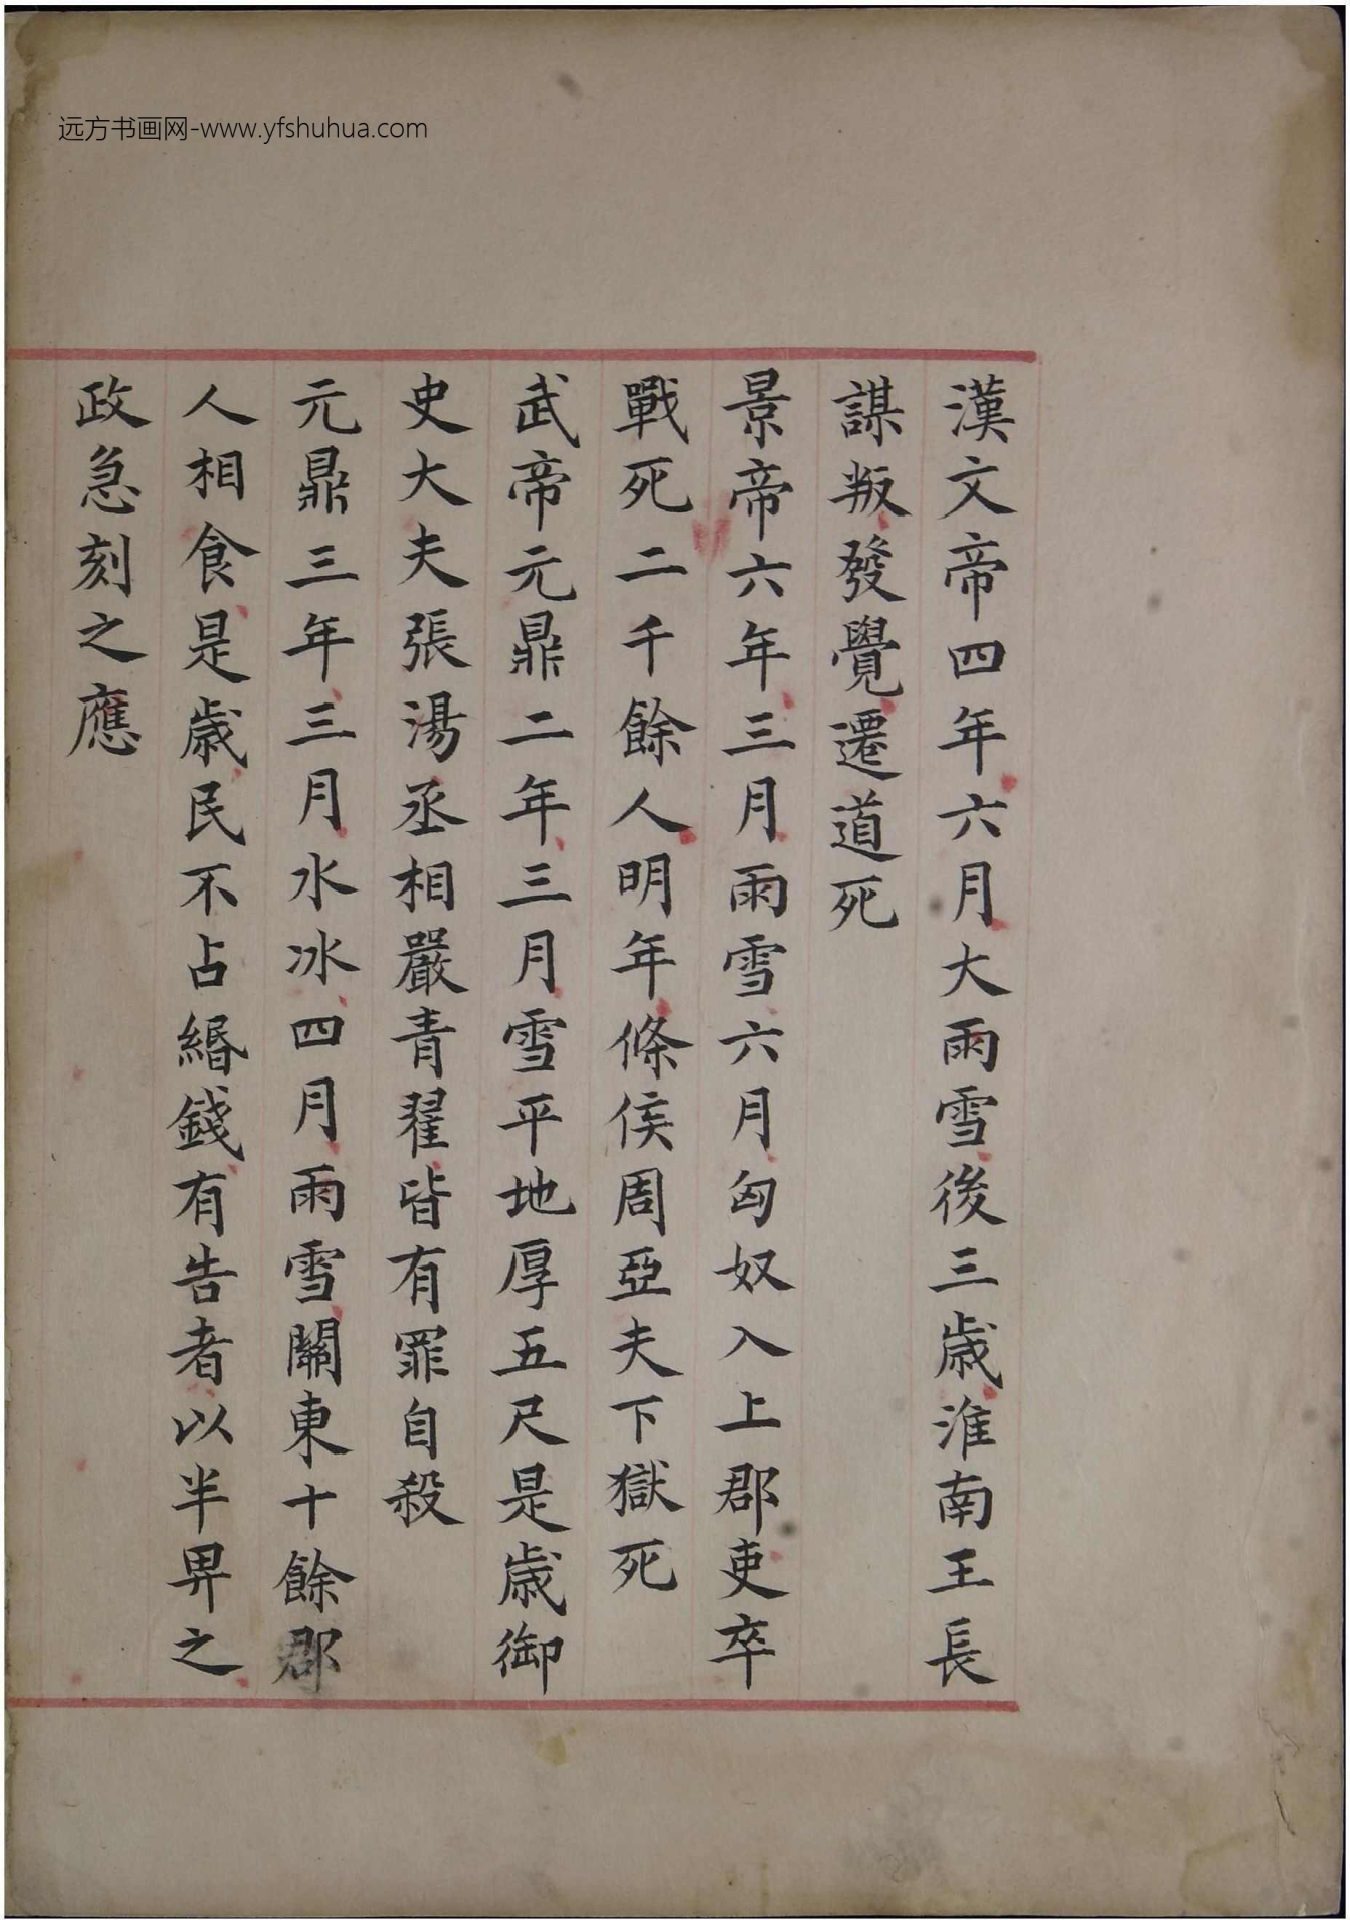 远方书画网-www.yfshuhua.com
漢文帝四年六月大雨雪後三歲淮南王長
謀叛發覺遷道死
景帝六年三月雨雪六月匈奴入上郡吏卒
戰死二千餘人明年條侯周亞夫下獄死
武帝元鼎二年三月雪平地厚五尺是歲御
史大夫張湯丞相嚴青翟皆有罪自殺
元鼎三年三月水冰四月雨雪關東十餘郡
人相食是歲民不占緡錢有告者以半畀之
政急刻之應